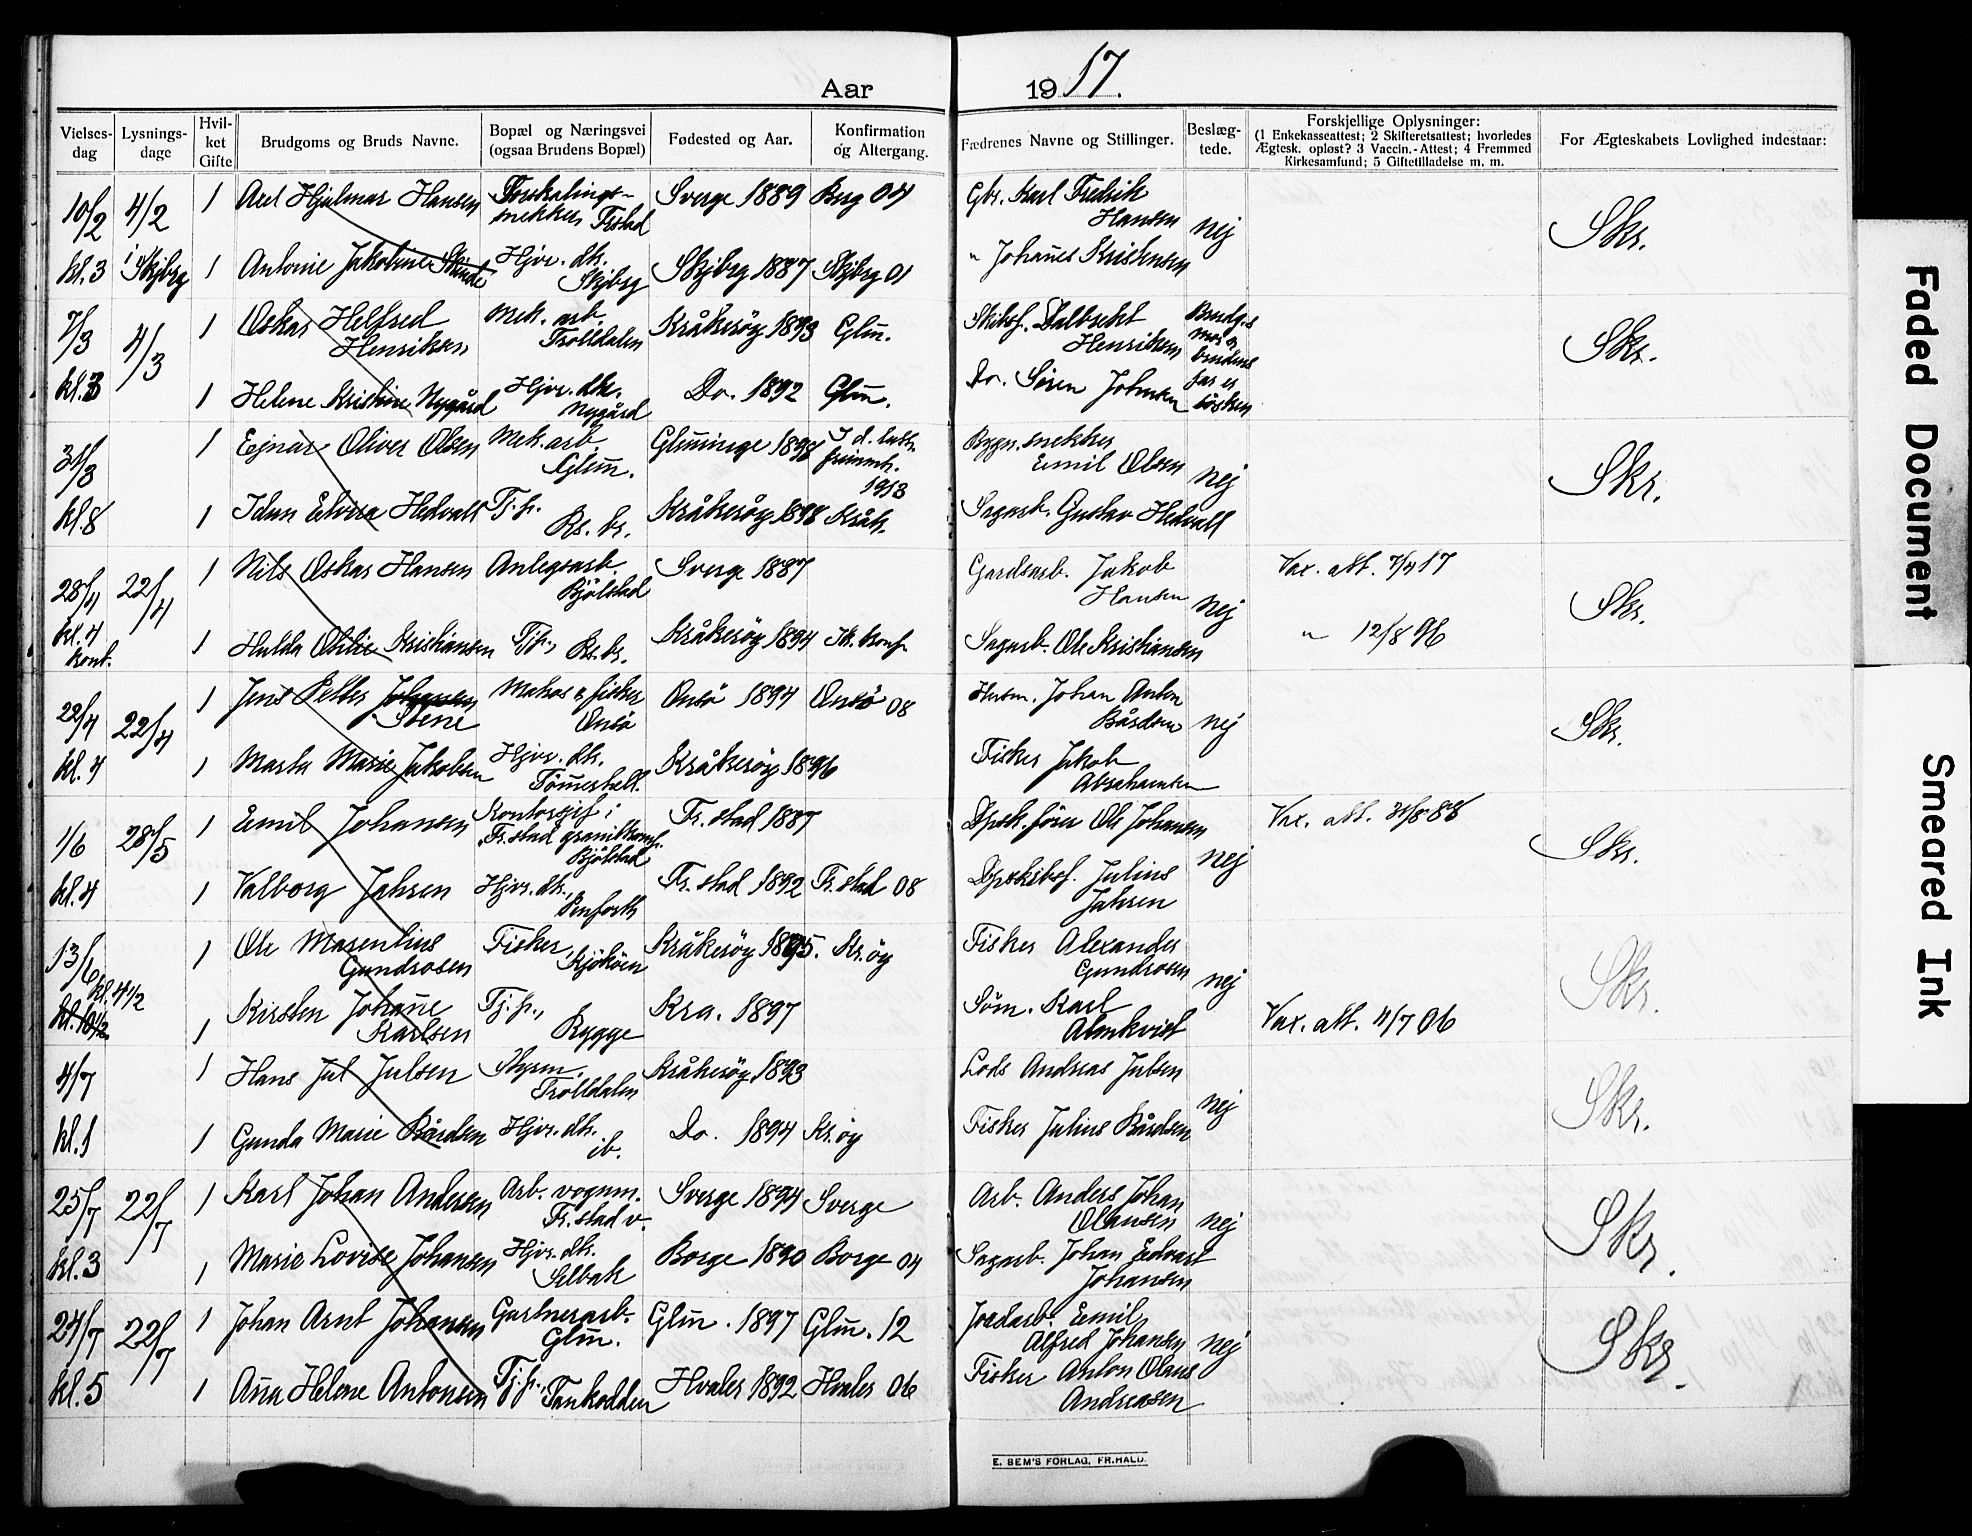 Aar 1917.
Vielses-dag
Lysnings-dage
Hvil-ket Gifte
Brudgoms og Bruds Navne.
Bopæl og Næringsvei (ogsaa Brudens Bopæl)
Fødested og Aar.
Konfirmation og Altergang.
Fædrenes Navne og Stillinger.
Beslæg-tede.
Forskjellige Oplysninger:
(1 Enkekasseattest; 2 Skifteretsattest; hvorledes
Ægtesk. opløst? 3 Vaccin.-Attest; 4 Fremmed
Kirkesamfund; 5 Giftetilladelse m. m.
For Ægteskabets Lovlighed indestaar:
10/2 4/2 1 Axel Hjalmar Hansen Forskalings-snekker Frstad Sverge 1889 Berg 04 Gbr. Karl Fredrik Hansen nej Skr.
kl. 3 i Skjbrg 1 Antonie Jakobine Hjvr. dk. Skjbrg Skjbrg 1887 Skjbrg 01 " Johañes Kristensen
7/3 4/3 1 Oskar Helfred Henriksen Mek. arb. Trolldalen Kråkerøy 1893 Glm̄. Skibsf. Henriksen Brudg.s mor og brudens far er søsken Skr.
kl. 3 1 Helene Kristine Nygård Hjvr. dk. Nygård Do. 1892 Glm̄. Do. Søren Johnsen
31/3 1 Ejnar Oliver Olsen Mek. arb. Glm̄. Glm̄inge 1898 I d. luth. frimenh. 1913 Bygn. snekker Emil Olsen nej Skr.
kl. 8 1 Idun Elvira Hedvall Tj.p. Kr.kr. Kråkerøy 1898 Kråk. Sagarb. Gustav Hedvall
28/4 22/4 1 Nils Oskar Hansen Anlegsarb. Bjölstad Sverge 1887 Gardsarb. Jakob Hansen nej Vax. att. 7/4 17 Skr.
kl. 4 kont. 1 Hulda Othilie Kristiansen Tj.p., Kråkerøy 1894 Ik. konf. Sagarb. Ole Kristiansen " 12/8 96
22/4 22/4 1 Jens Petter Johansen Stene Matros & fisker Onsö Onsö 1894 Onsö 08 Johan Anton Bårdsen nej Skr.
kl. 4 1 Marta Marie Jakobsen Hjvr. dk. Kråkerøy 1896 Fisker Jakob Abrahamsen
1/6 28/5 1 Emil Johansen Kontorsjef i Fr.stad granitkomp. Bjölstad Fr. stad 1887 Dpsk.förer Ole Johansen nej Vax. att. 31/8 88 Skr.
kl. 4 1 Valborg Jahren Hjvr. dk., Fr. stad 1892 Fr. stad 08 Dpskibsf. Julius Jahren
13/6 kl. 4 1/2 1 Ole Marentius Gundrosen Fisker, Kjököen Kråkerøy 1895. Kr. öy Fisker Alexander Gundrosen nej Skr.
kl. 10 1/2 1 Kirsten Johañe Karlsen Tj.p., Rygge Kra. 1897 Söm. Karl Almkvist Vax. att. 4/7 06
4/7 1 Hans Jul Julsen Styrm. Trolldalen Kråkerøy 1893 Lods Andreas Julsen nej Skr.
kl. 1 1 Gunda Marie Bårdsen Hjvr. dk. ib. Do. 1894 Kr. öy Fisker Julius Bårdsen
25/7 22/7 1 Karl Johan Andersen Arb. vognm. Fr. stad v. Sverge 1894 Sverge Arb. Anders Johan nej Skr.
kl. 3 1 Marie Lovise Johansen Hjvr. dk. Selbak Borge 1890 Borge 04 Sagarb. Johan Edvart Johansen
24/7 22/7 1 Johan Arnt Johansen Gartnerarb. Glm̄. Glm̄. 1897 Glm̄. 12 Jordarb. Emil Alfred Johansen nej Skr.
kl. 5 1 Aña Helene Antonsen Tj.p., Tankodden Hvaler 1892 Hvaler 06 Fisker Anton Olaus Andreasen
E. SEM'S FORLAG, FR.HALD.
Faded Document
Smeared Ink